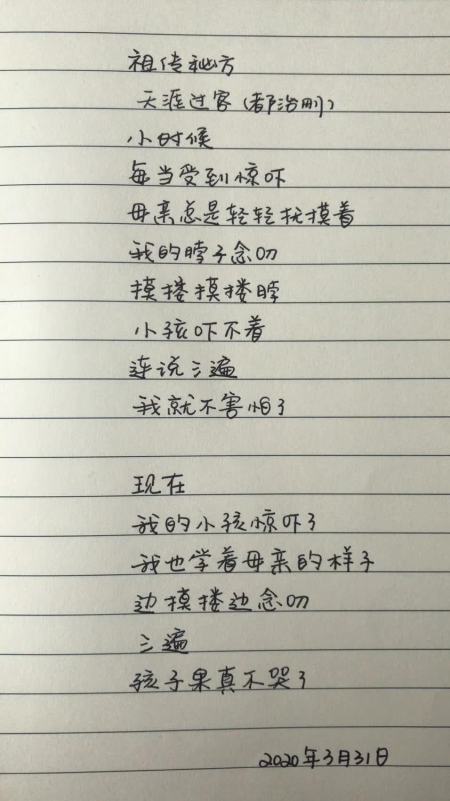 祖传秘方
天涯过客(都治刚)
小时候
每当受到惊吓
母亲总是轻轻抚摸着
我的脖子念叨
摸搂摸搂脖
小孩吓不着
连说三遍
我就不害怕了
现在
我的小孩惊吓了
我也学着母亲的样子
边摸搂边念叨
三遍
孩子果真不哭了
2020年3月31日